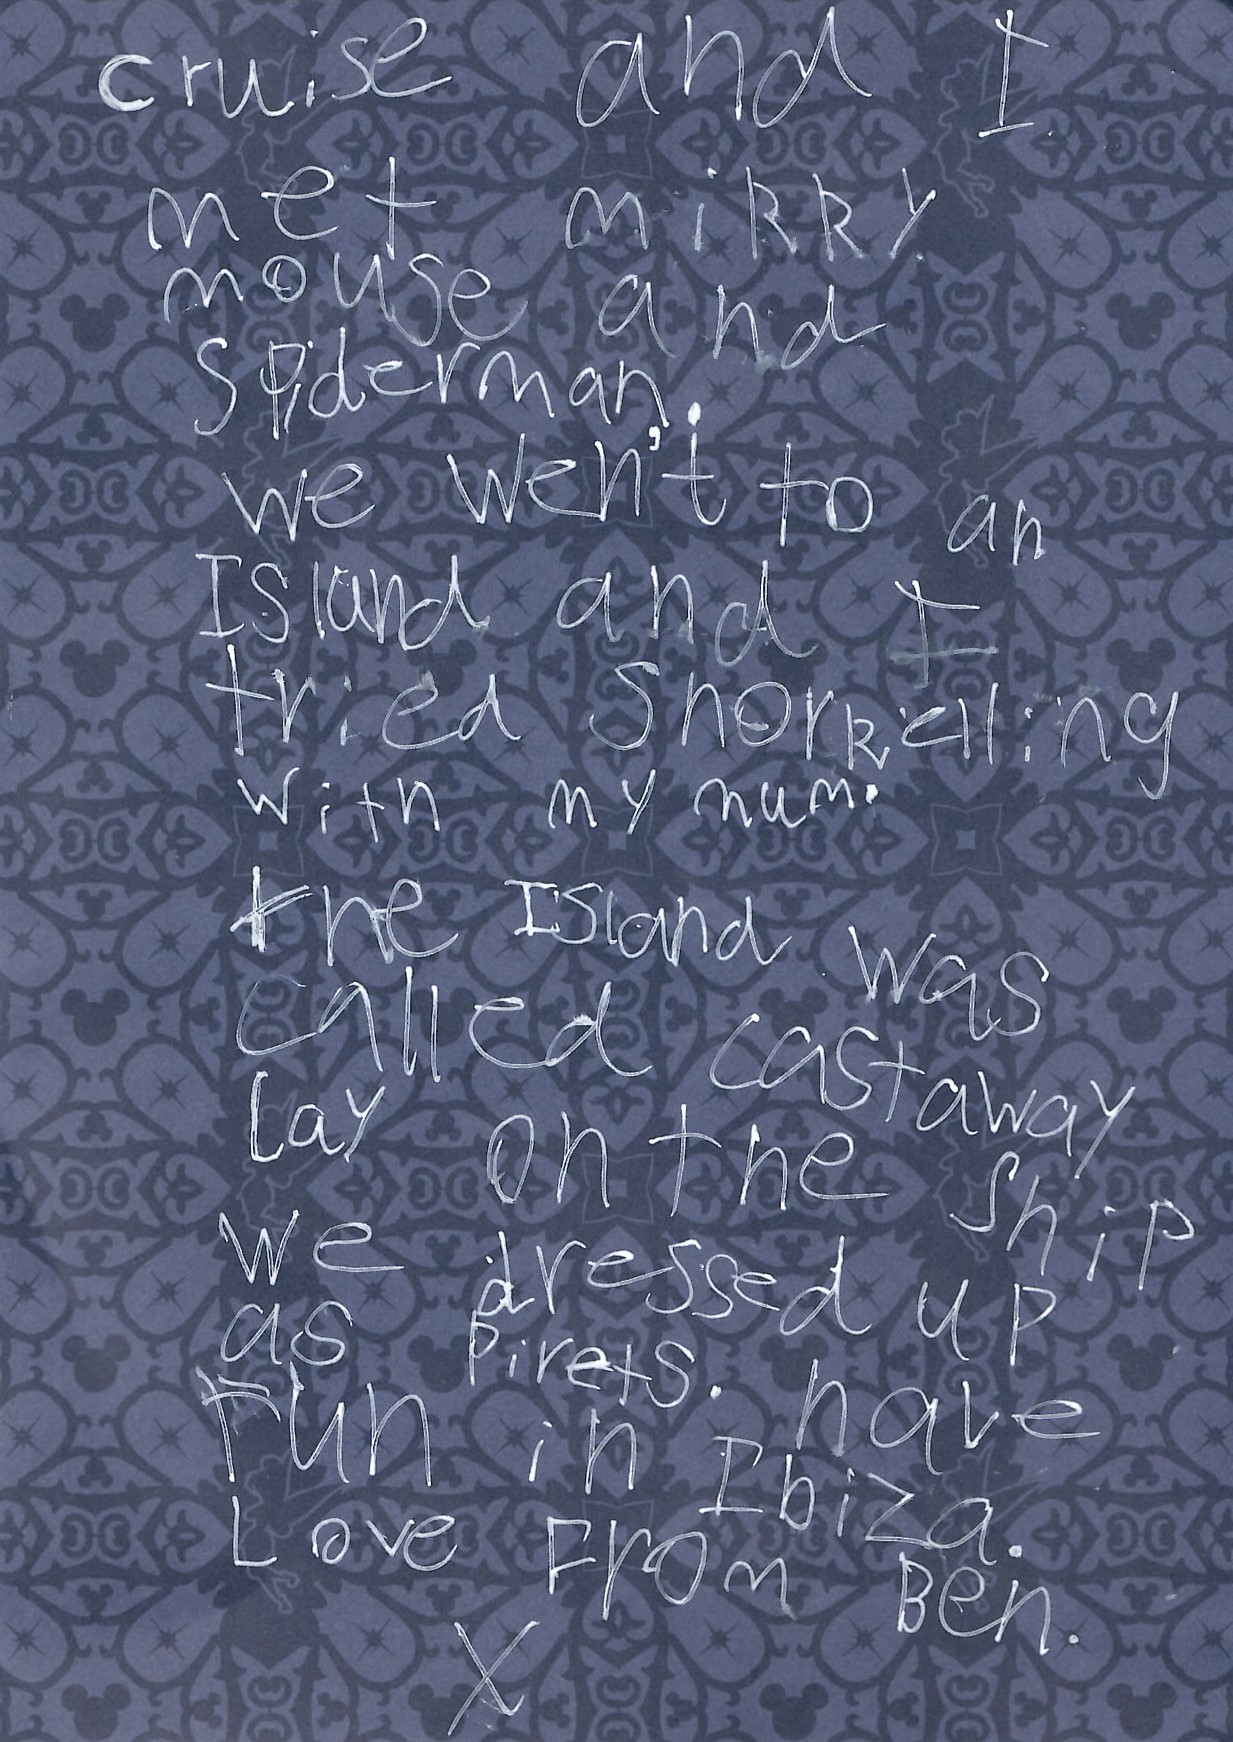 cruise and I
met miRRY
mouse and
Spiderman.
we wen't to an
Island and I
tried Snorkelling
with my mum.
the Island was
called castaway
Cay on the Ship
we dressed up
as Pirets. have
fun in Ibiza.
Love From Ben.
X